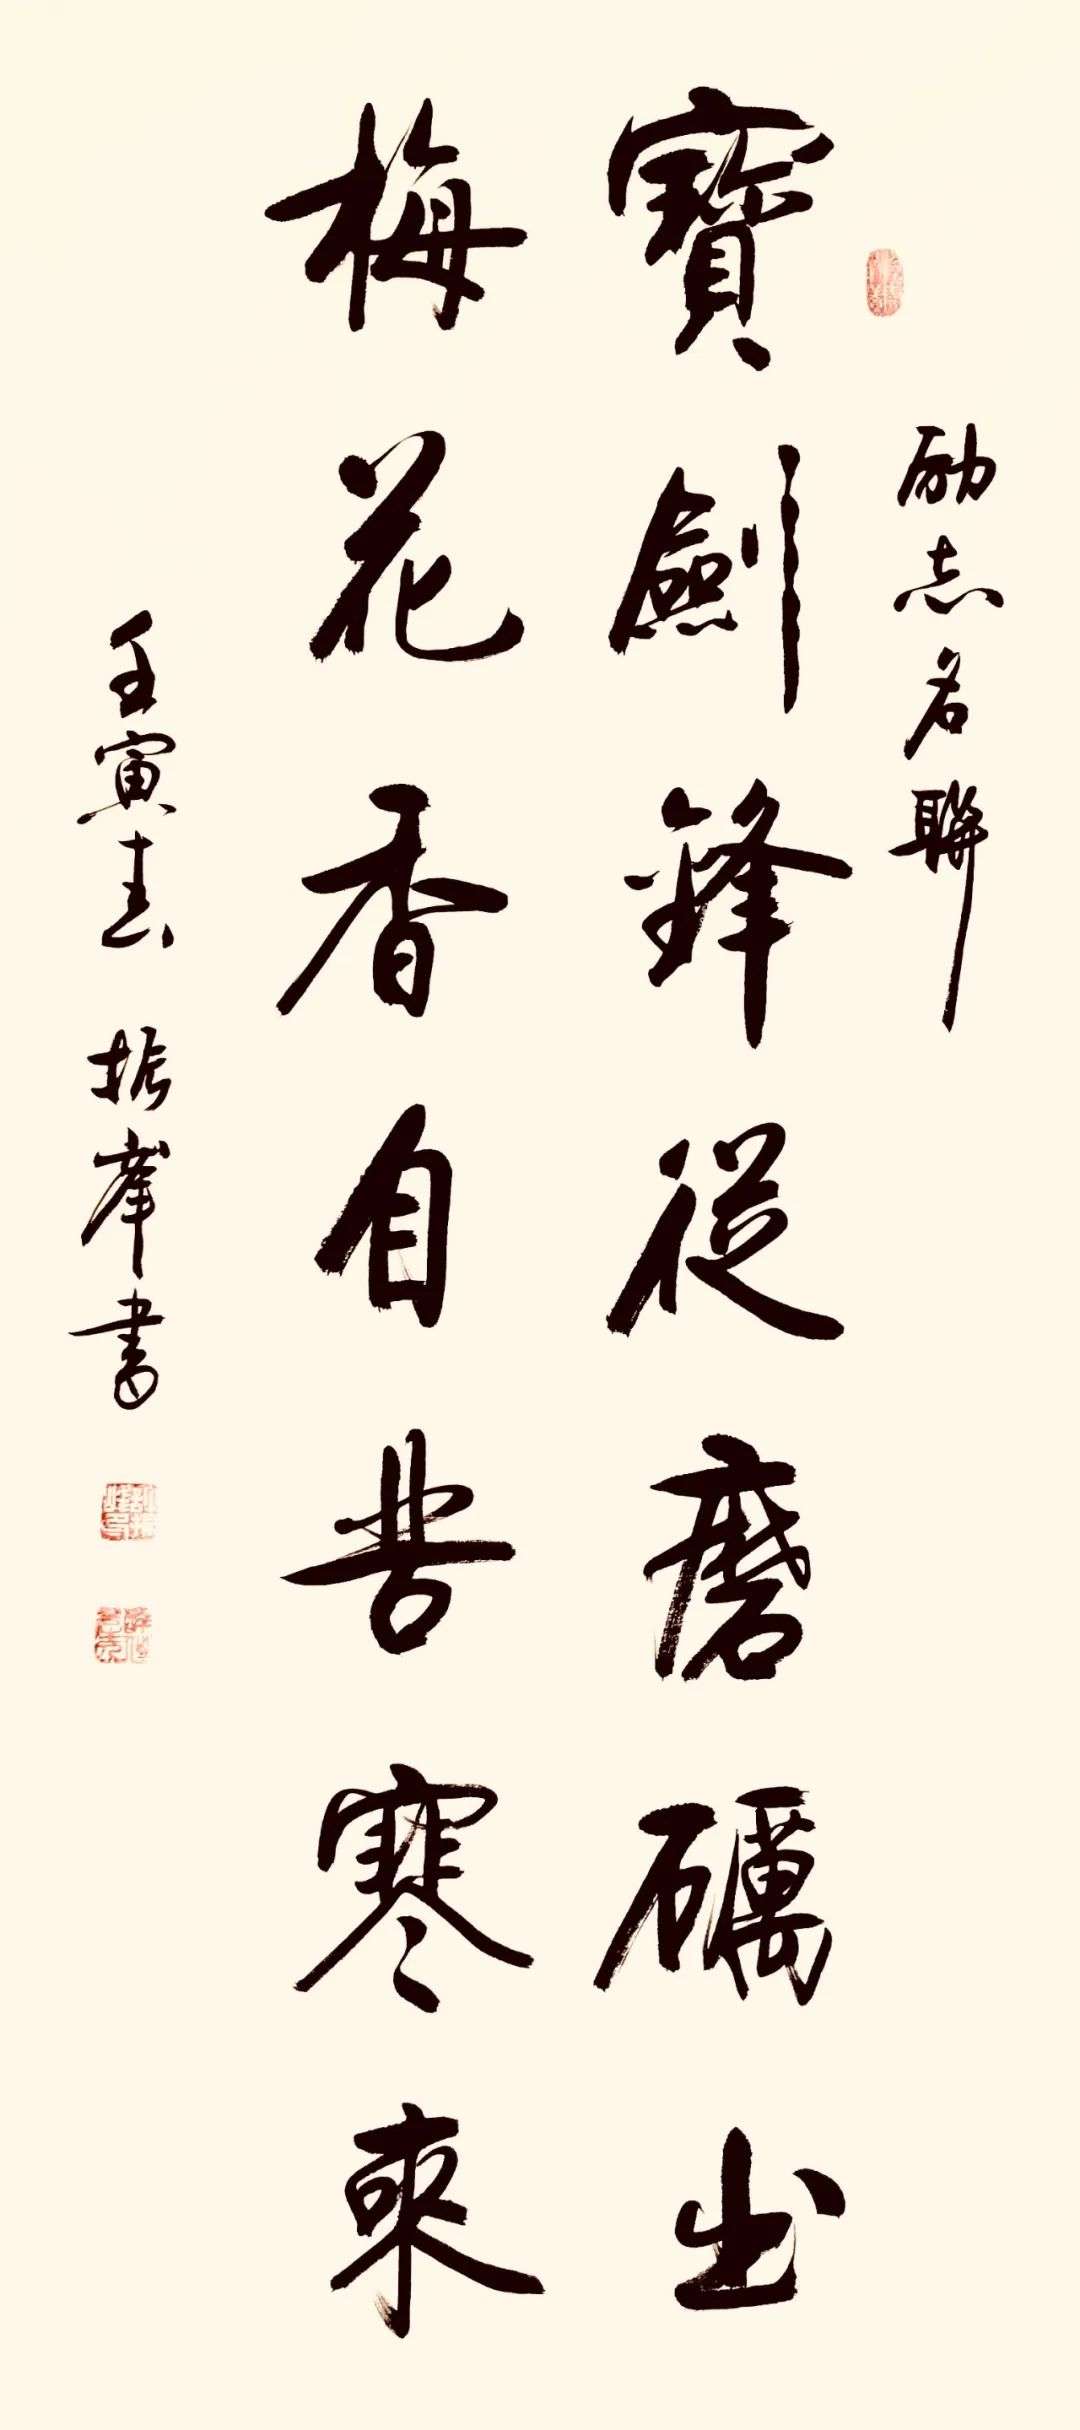 励志名聯
寶劍鋒從磨礪出
梅花香自苦寒來
壬寅春 振峯書